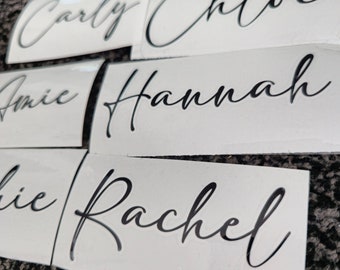 Carly Chloe
Amie Hannah
Rachel